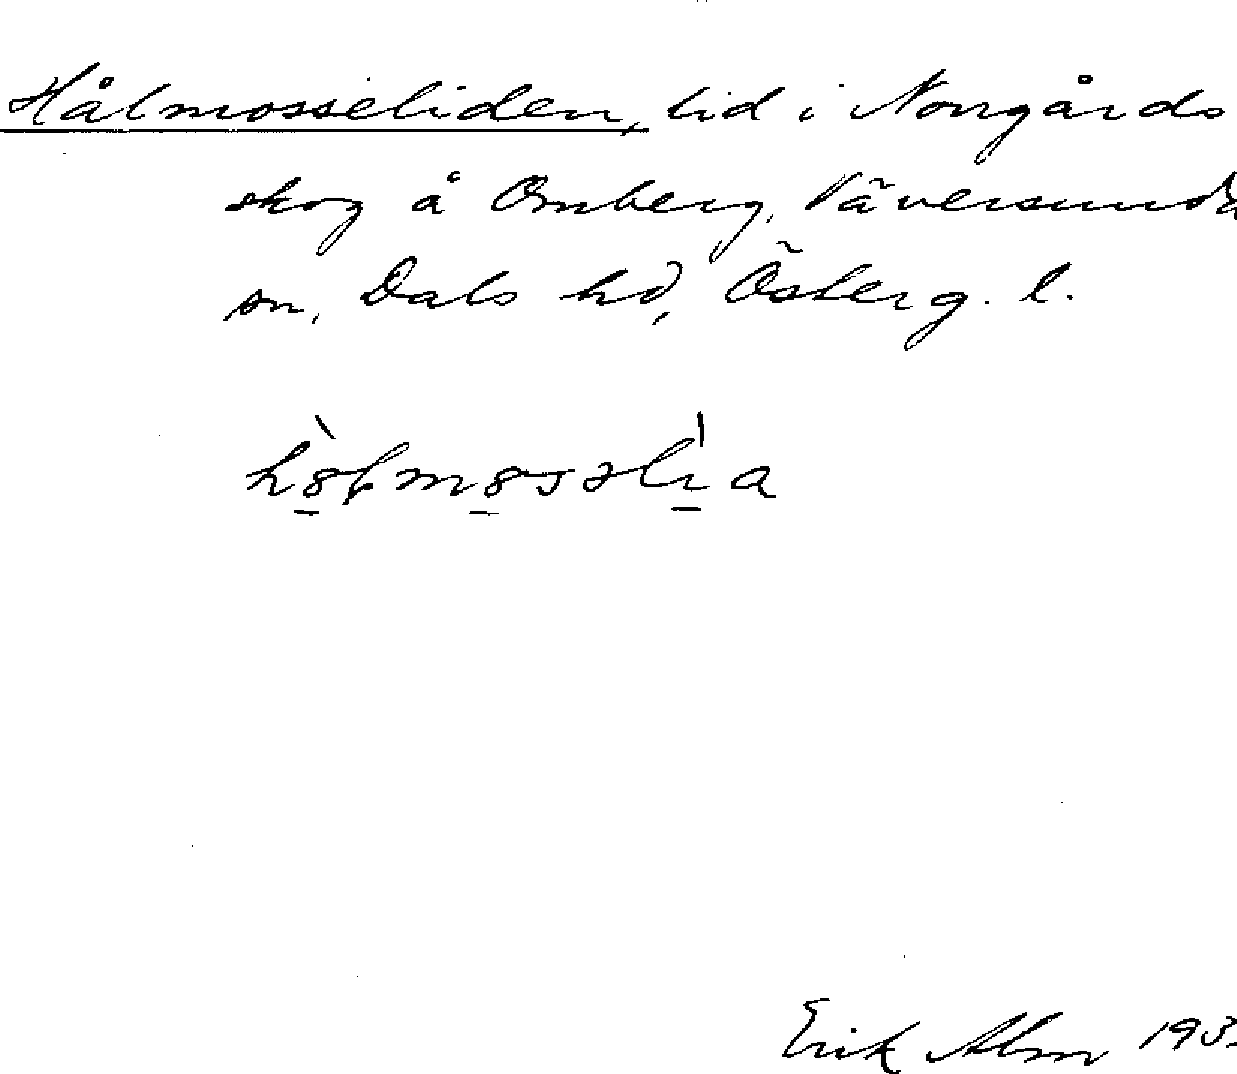 Hålmosseliden, lid i Norrgårds
skog å Omberg, Väversunda
sn, Dals hd, Österg. l.
Erik Alm 193